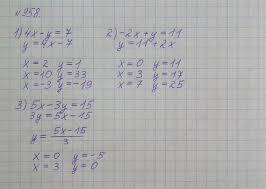 №958.
1) 4x-y=7 2) -2x+y=11
y=4x-7 y=11+2x
x=2 y=1 x=0 y=11
x=10 y=33 x=3 y=17
x=-3 y=-19 x=7 y=25
3) 5x-3y=15
3y=5x-15
y=(5x-15)/3
x=0 y=-5
x=3 y=0